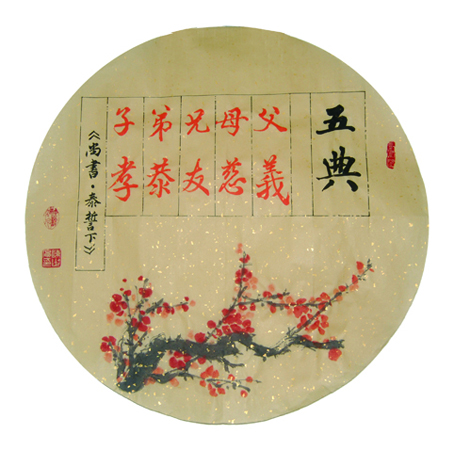 五典
父義
母慈
兄友
弟恭
子孝
《尚書·泰誓下》